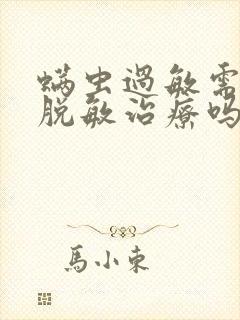 螨虫過敏需
脱敏治療吗
馬小東